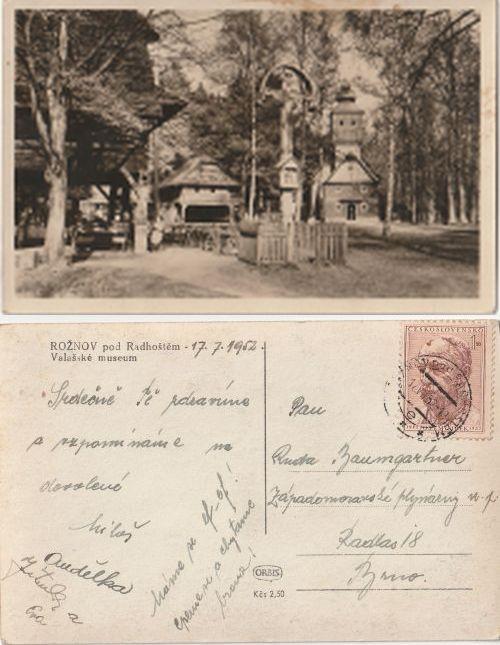 ROŽNOV pod Radhoštěm - 17.7.1952.
Valašské museum
Srdečně Tě zdravíme
a vzpomínáme na
dovolené
Miloš
Andělka
Zdeněk a
Eva
Máme se ef-ef!
a chytáme
bronz!
ORBIS
Kčs 2,50
ČESKOSLOVENSKO
Pan
Ruda Baumgartner
Západomoravské plynárny n. p.
Radlas 18
Brno.